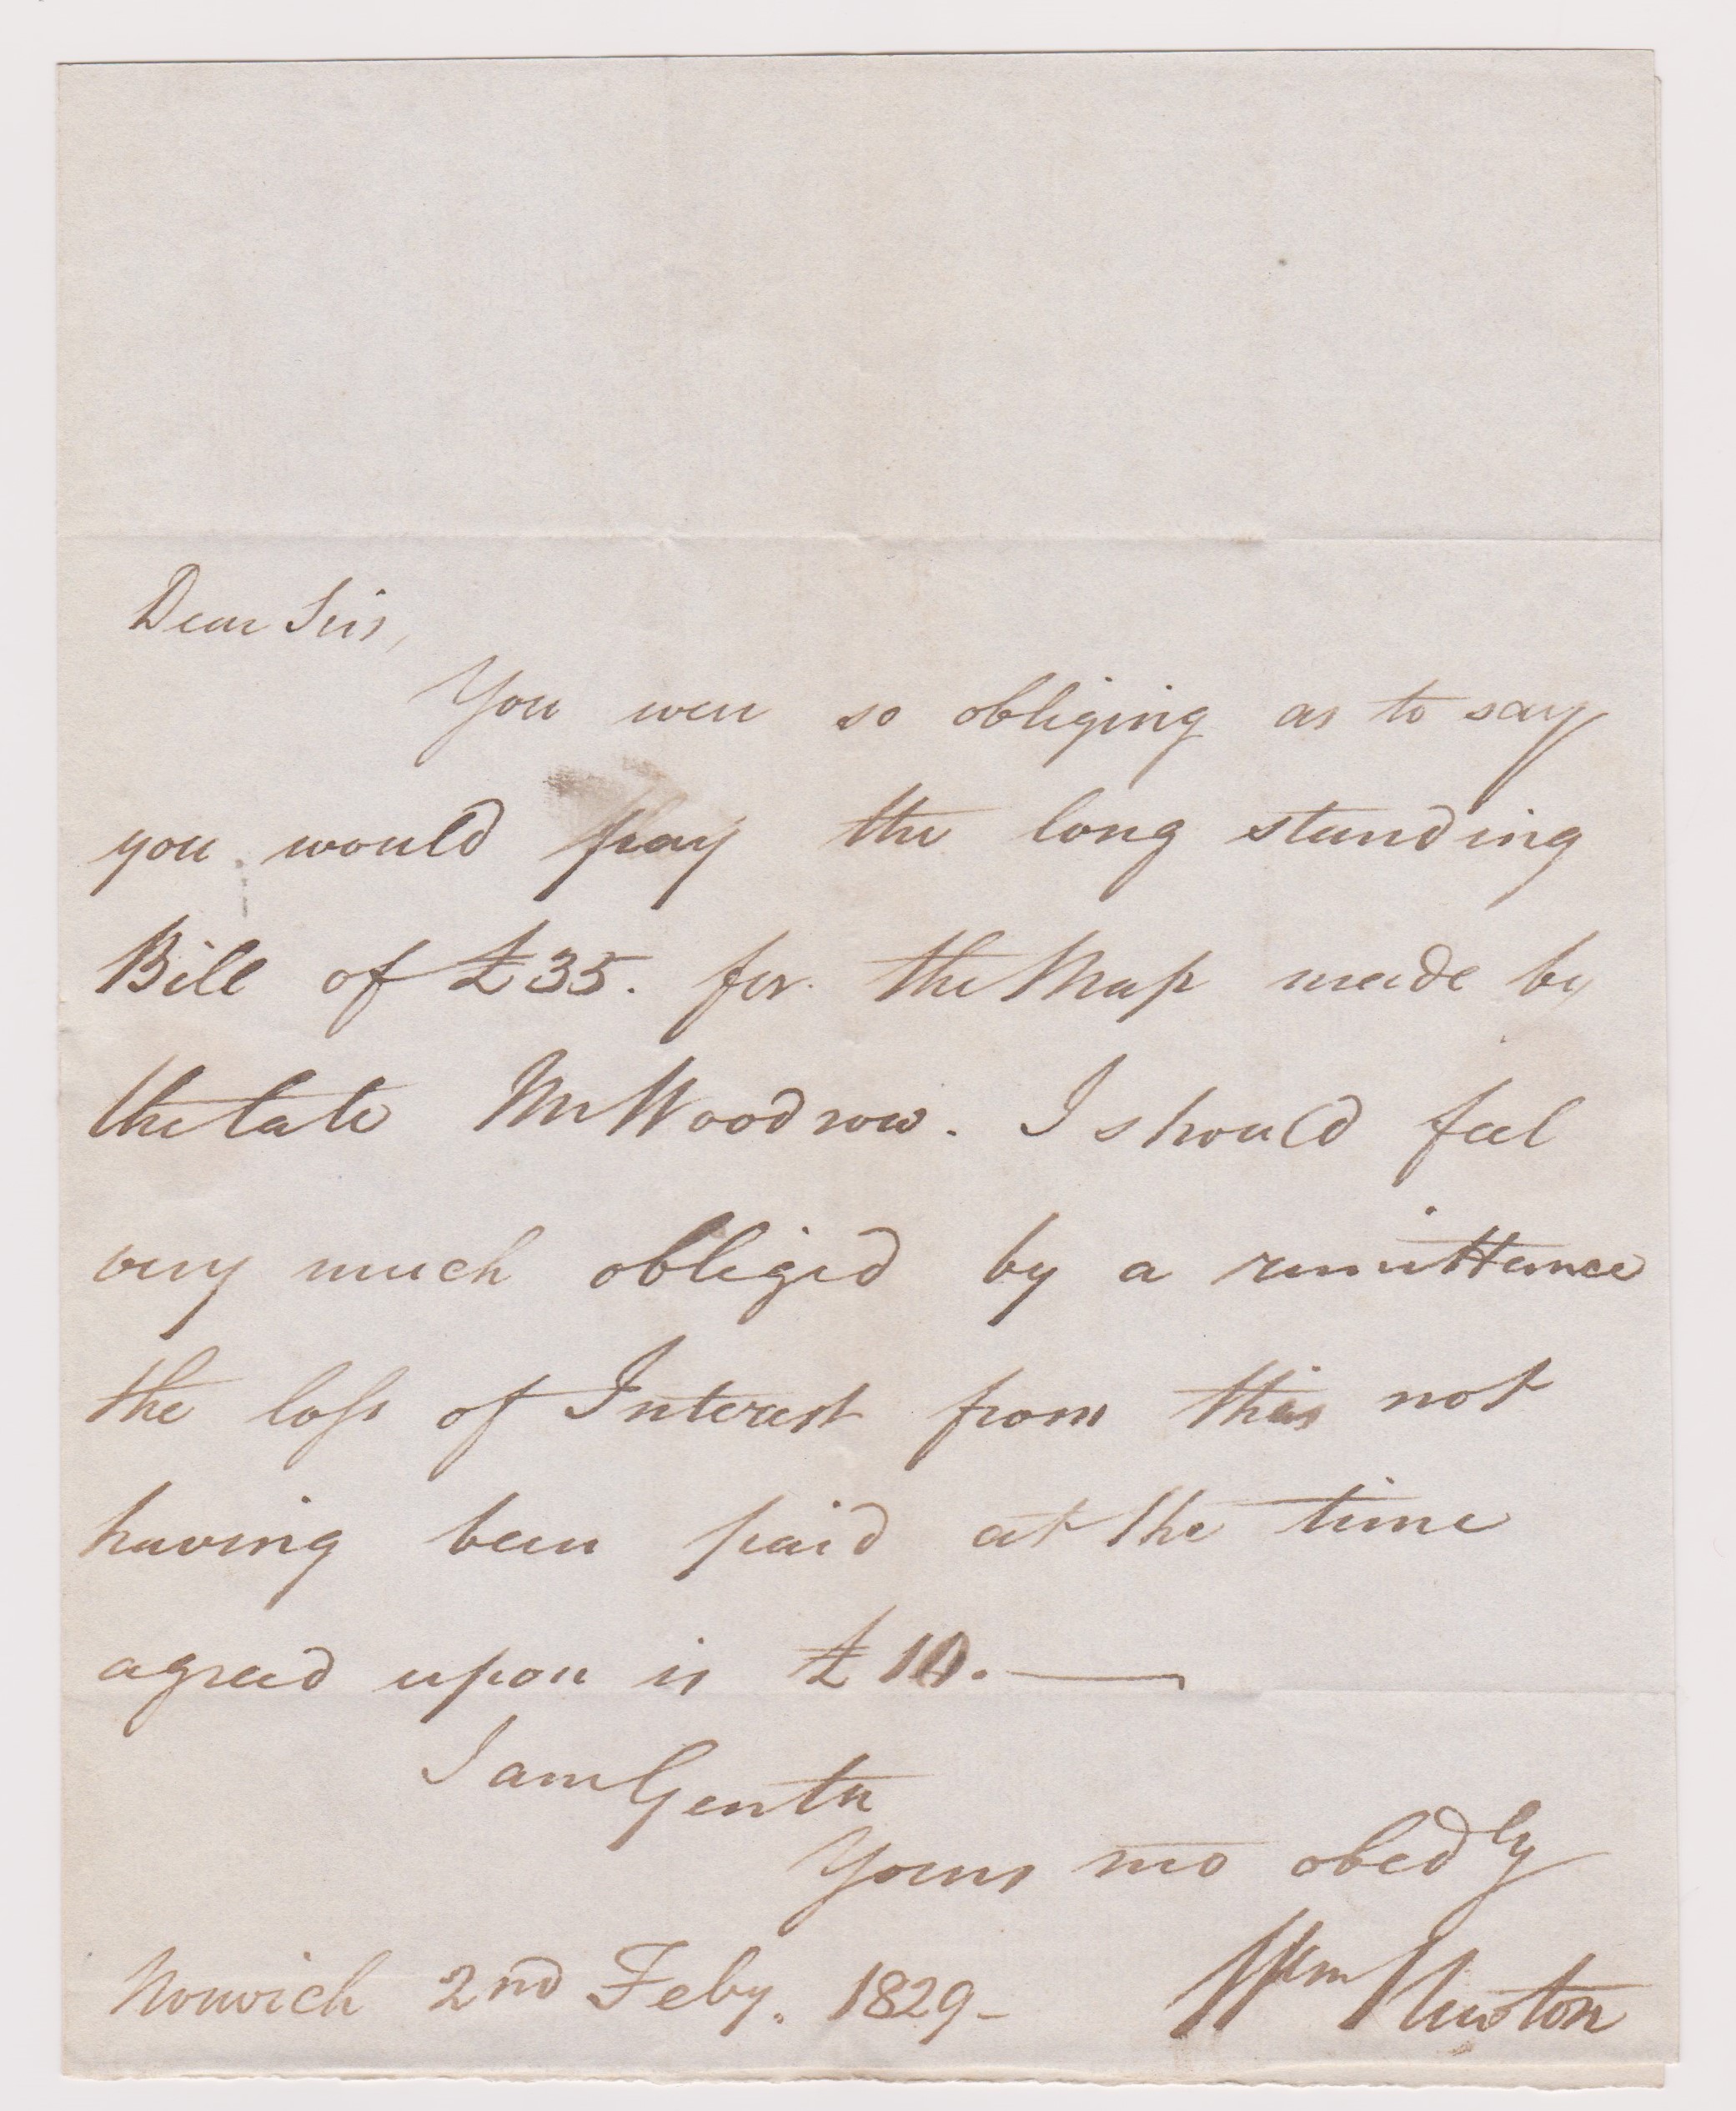 Dear Sirs,
You were so obliging as to say
you would pay the long standing
Bill of £35. for the Map made by
the late Mr Woodrow. I should feel
very much obliged by a remittance
the loss of Interest from this not
having been paid at the time
agreed upon is £10.—
I am Gentn
Yours mo obedly
Norwich 2nd Feby. 1829– Wm Newton